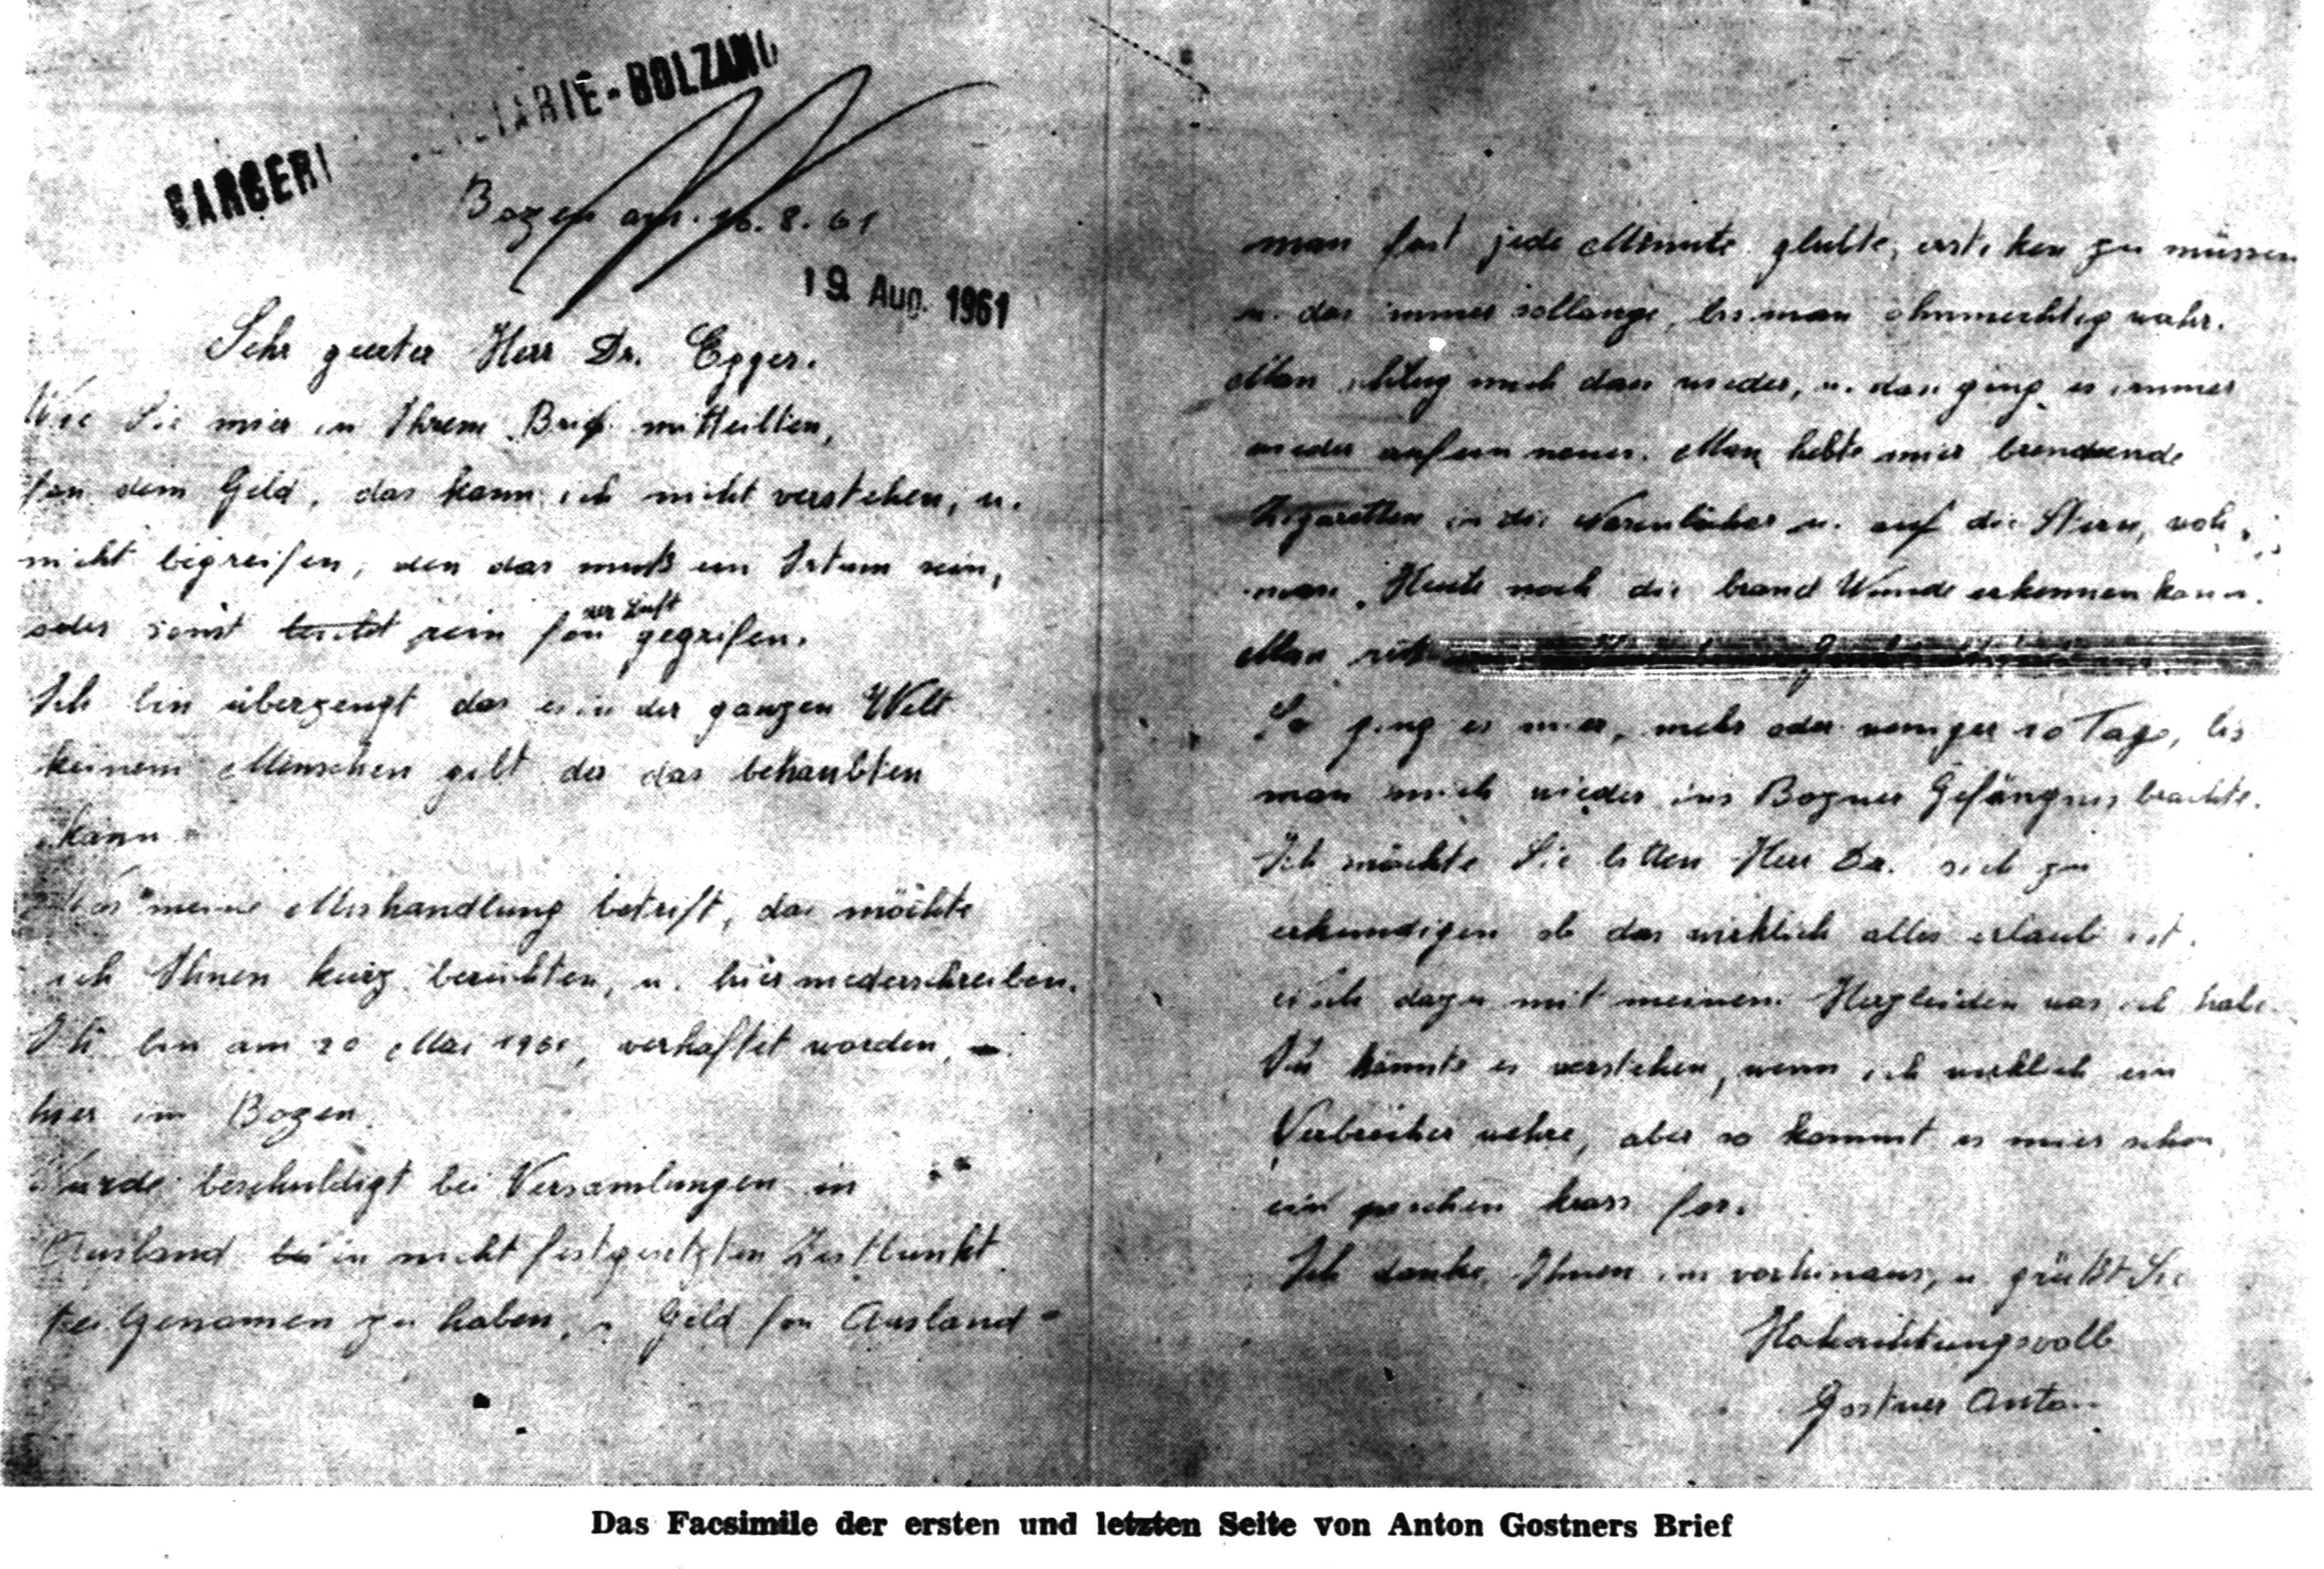 CARCERI GIUDIZIARIE-BOLZANO
Bozen am. 16.8.61
19. Aug. 1961
Sehr geerter Herr Dr. Egger.
Wie Sie mier in Ihrem Brif mitteilten,
fon dem Geld, das kann ich nicht verstehen, u.
nicht bigreifen, den das muß ein Irtum sein,
oder sonst rein fon der Luft gegrifen.
Ich bin überzeugt das es in der ganzen Welt
keinem Menschen gibt der das behaubten
kann
Was meine Mishandlung betrift, das möchte
ich Ihnen kurz berichten, u. hier niederschreiben.
Ich bin am 20 Mai 1961, verhaftet worden,
hier in Bozen.
Wurde beschuldigt bei Versamlungen in
Ausland in nicht festgesetzten Zeitbunkt
teilgenomen zu haben, u Geld fon Ausland-
man fast jede Minute glubte, ersticken zu müssen
u. das immer sollange, bis man ohnmechtig wahr.
Man schlug mich dan wieder, u. dan ging es immer
wieder aufein neues. Man hebte mier brendende
Zigaretten in die Nasenlöcher u. auf die Stirn, woh
man Heute noch die brand Wunde erkennen kann.
Man
So ging es mier, mehr oder weniger 10 Tage, bis
man mich wieder ins Bozner Gefängnis brachte.
Ich möchte Sie bitten Herr Dr. sich zu
erkundigen ob das wirklich alles erlaubt ist.
dazu mit meinem Herzleiden was ich habe.
könnte es verstehen, wenn ich wirklich ein
Verbrecher wehre, aber so kommt es mier schon
ein krass for.
Ich danke Ihnen im vorhinaus, u grüßt Sie
Hohachtungsvoll
Gostner Anton
Das Facsimile der ersten und letzten Seite von Anton Gostners Brief